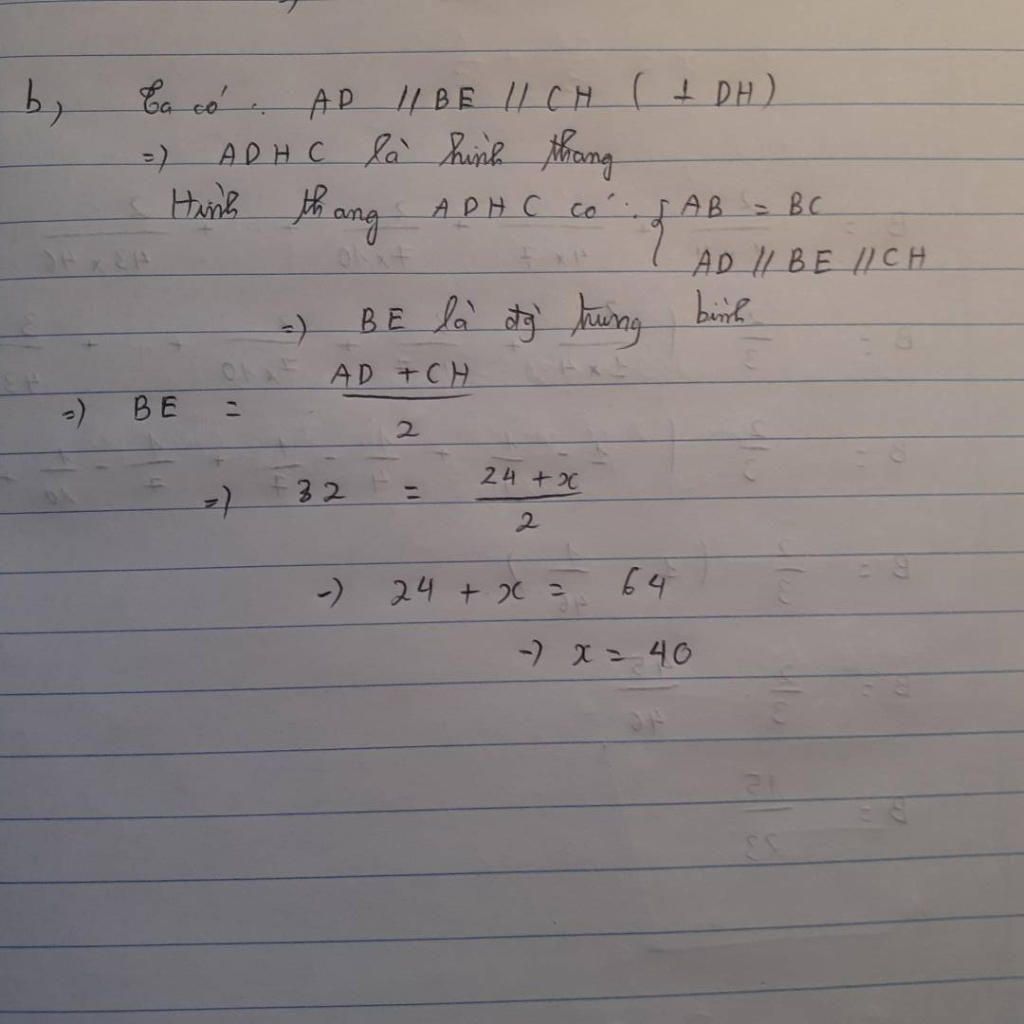 b, Ta có : AD // BE // CH ( ⊥ DH )
=) ADHC là hình thang
Hình thang ADHC có : { AB = BC
AD // BE // CH
=) BE là đg̀ trung bình
=) BE = \frac{AD + CH}{2}
=) 32 = \frac{24 + x}{2}
-) 24 + x = 64
-) x = 40